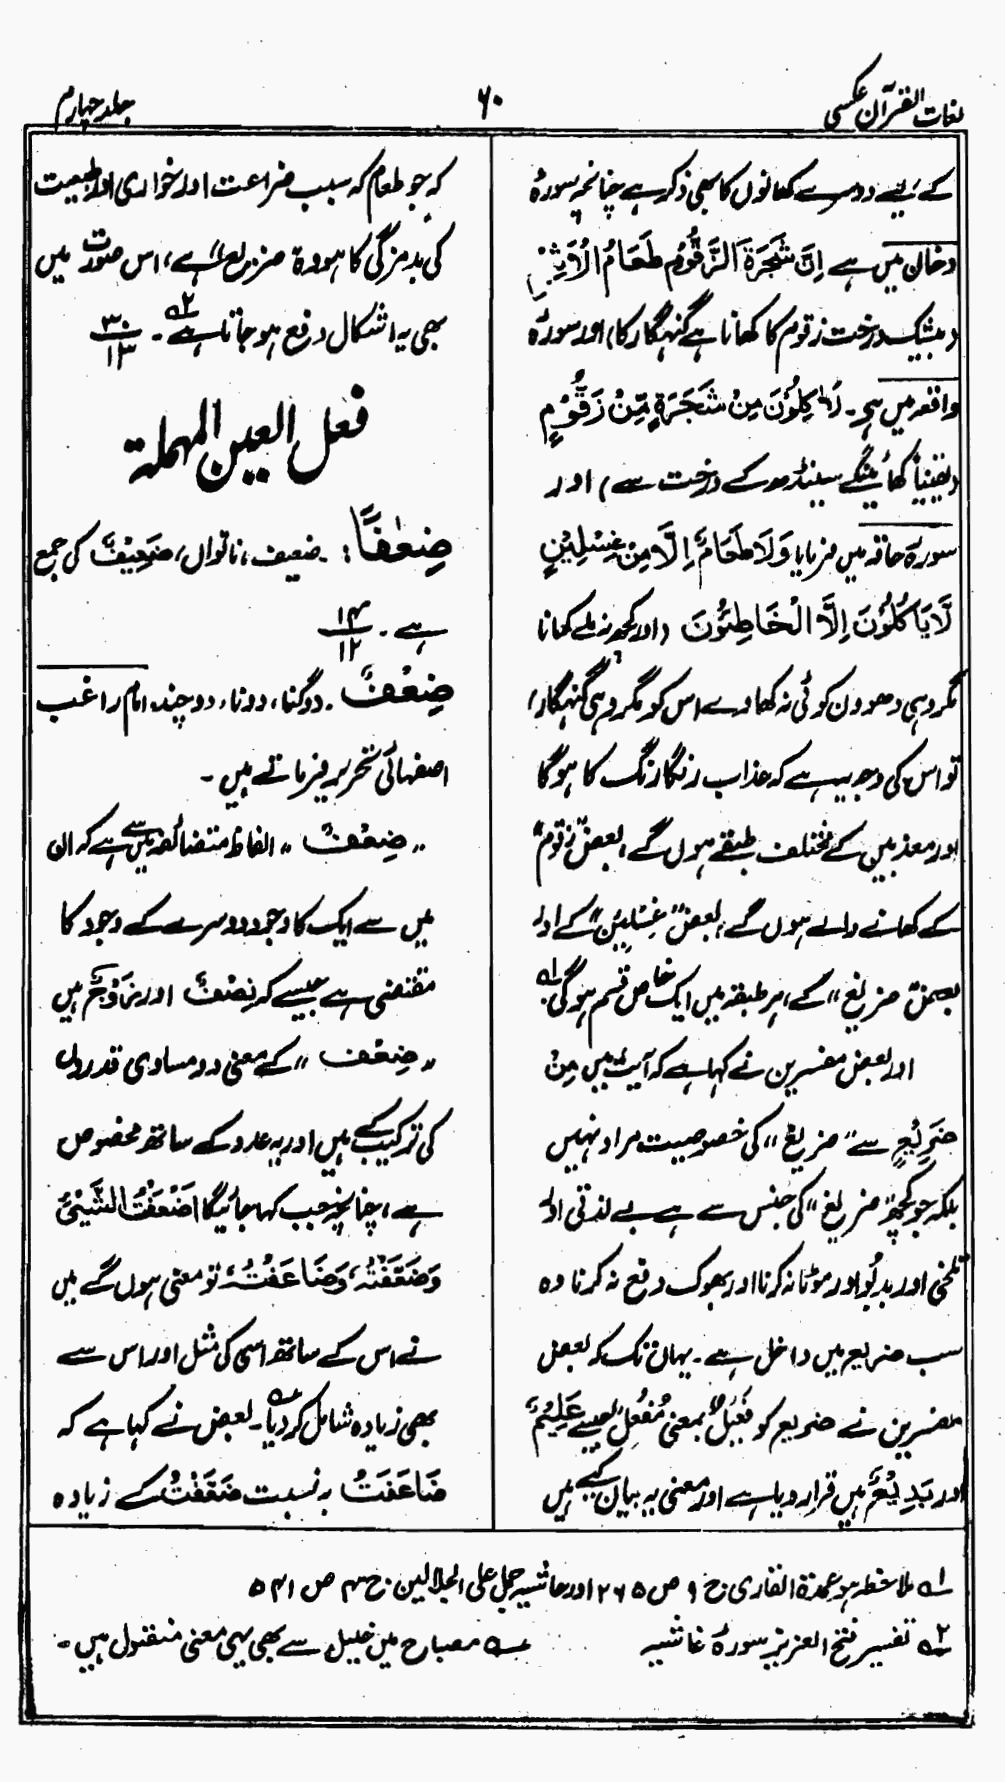 لغات القرآن عکسی
۶۰
جلد چہارم
کے لیے دوسرے کھانوں کا بھی ذکر ہے چنانچہ سورۂ
دخان میں ہے اِنَّ شَجَرَةَ الزَّقُّوْمِ طَعَامُ الْاَثِيْمِ
(بیشک درخت زقوم کا کھانا ہے گنہگار کا) اور سورۂ
واقعہ میں ہے۔ لَاٰكِلُوْنَ مِنْ شَجَرَةٍ مِّنْ زَقُّوْمٍ
(یقیناً کھائینگے سینڈھ کے درخت سے) اور
سورۂ حاقہ میں فرمایا وَلَا طَعَامٌ اِلَّا مِنْ غِسْلِيْنٍ
لَّا يَاْكُلُوْنَ اِلَّا الْخَاطِئُوْنَ (اور کچھ نہ ملے کھانا
مگر وہی دھوون کوئی نہ کھاوے اس کو مگر وہی گنہگار)
تو اس کی وجہ یہ ہے کہ عذاب رنگا رنگ کا ہوگا
اور معذبین کے مختلف طبقے ہوں گے، بعض "زقوم"
کے کھانے والے ہوں گے، بعض "غِسْلِیْن" کے اور
بعض "ضریع" کے، ہر طبقہ میں ایک خاص قسم ہوگی ؎۱
اور بعض مفسرین نے کہا ہے کہ آیت میں مِنْ
ضَرِيْعٍ سے "ضریع" کی خصوصیت مراد نہیں
بلکہ جو کچھ "ضریع" کی جنس سے ہے بے لذتی اور
تلخی اور بدبو اور موٹا نہ کرنا اور بھوک دفع نہ کرنا وہ
سب ضریع میں داخل ہے۔ یہاں تک کہ بعض
مفسرین نے ضریع کو فَعِیْلٌ بمعنی مُفْعِلٌ جیسے عَلِيْمٌ
اور بَدِيْعٌ ہیں قرار دیا ہے اور معنی یہ بیان کیے ہیں
کہ جو طعام کہ سبب ضراعت اور خواری اور طبیعت
کی بدمزگی کا ہو وہ "ضریع" ہے، اس صورت میں
بھی یہ اشکال رفع ہو جاتا ہے ؎۲۔ ۳۰/۱۳
فصل العین المہملۃ
ضِعٰفًا: ۔ ضعیف، ناتواں، ضَعِیْفٌ کی جمع
ہے۔ ۴/۱۲
ضِعْفٌ۔ دوگنا، دونا، دوچند، امام راغب
اصفہانی تحریر فرماتے ہیں۔
"ضِعْفٌ" الفاظ متضائفہ میں سے ہے کہ ان
میں سے ایک کا وجود دوسرے کے وجود کا
مقتضی ہے جیسے کہ نِصْفٌ اور زَوْجٌ ہیں
"ضِعْف" کے معنی دو مساوی قدروں
کی ترکیب کے ہیں اور یہ عدد کے ساتھ مخصوص
ہے، چنانچہ جب کہا جائیگا اَضْعَفْتُ الشَّيْئَ
وَضَعَّفْتُهٗ، وَضَاعَفْتُهٗ تو معنی ہوں گے میں
نے اس کے ساتھ اسی کی مثل اور اس سے
بھی زیادہ شامل کر دیا ؎۔ بعض نے کہا ہے کہ
ضَاعَفْتُ بہ نسبت ضَعَّفْتُ کے زیادہ
؎۱ ملاحظہ ہو عمدۃ القاری ج ۹ ص ۲۶۵ اور حاشیہ جمل علی الجلالین ج ۴ ص ۵۴۱
؎۲ تفسیر فتح العزیز سورۂ غاشیہ
؎ مصباح میں خلیل سے بھی یہی معنی منقول ہیں۔